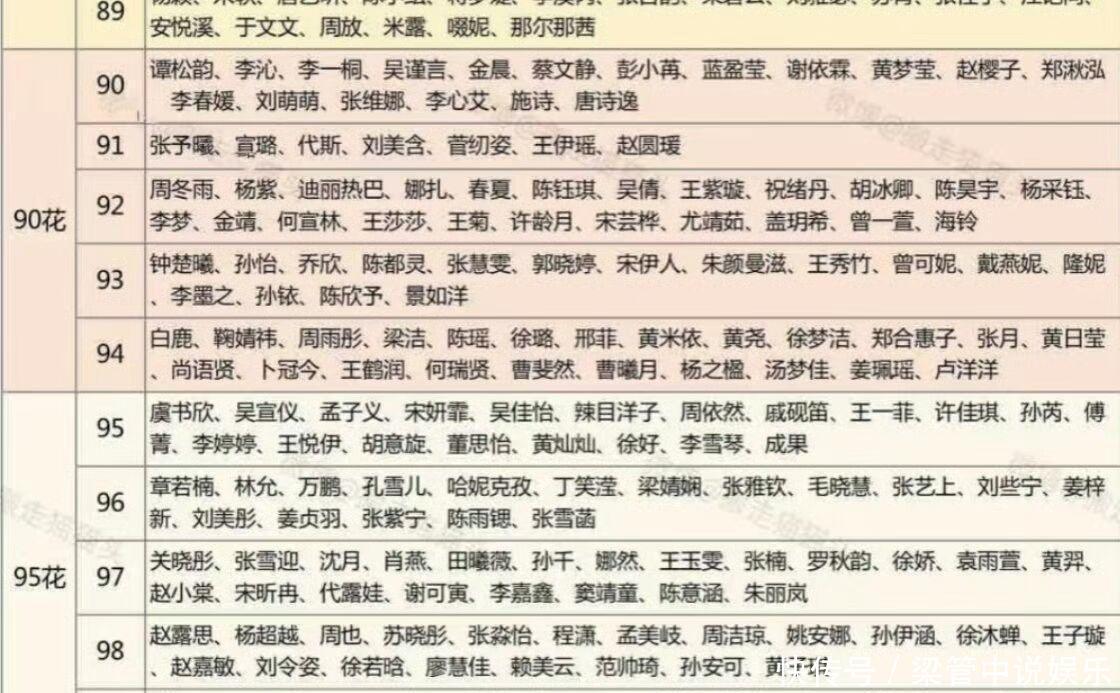 89
安悦溪、于文文、周放、米露、啜妮、那尔那茜
90花
90
谭松韵、李沁、李一桐、吴谨言、金晨、蔡文静、彭小苒、蓝盈莹、谢依霖、黄梦莹、赵樱子、郑湫泓
李春嫒、刘萌萌、张维娜、李心艾、施诗、唐诗逸
91
张予曦、宣璐、代斯、刘美含、菅纫姿、王伊瑶、赵圆瑗
92
周冬雨、杨紫、迪丽热巴、娜扎、春夏、陈钰琪、吴倩、王紫璇、祝绪丹、胡冰卿、陈昊宇、杨采钰、
李梦、金靖、何宣林、王莎莎、王菊、许龄月、宋芸桦、尤靖茹、盖玥希、曾一萱、海铃
93
钟楚曦、孙怡、乔欣、陈都灵、张慧雯、郭晓婷、宋伊人、朱颜曼滋、王秀竹、曾可妮、戴燕妮、隆妮
、李墨之、孙铱、陈欣予、景如洋
94
白鹿、鞠婧祎、周雨彤、梁洁、陈瑶、徐璐、邢菲、黄米依、黄尧、徐梦洁、郑合惠子、张月、黄日莹
、尚语贤、卜冠今、王鹤润、何瑞贤、曹斐然、曹曦月、杨之楹、汤梦佳、姜珮瑶、卢洋洋
95花
95
虞书欣、吴宣仪、孟子义、宋妍霏、吴佳怡、辣目洋子、周依然、戚砚笛、王一菲、许佳琪、孙芮、傅
菁、李婷婷、王悦伊、胡意旋、董思怡、黄灿灿、徐好、李雪琴、成果
96
章若楠、林允、万鹏、孔雪儿、哈妮克孜、丁笑滢、梁婧娴、张雅钦、毛晓慧、张艺上、刘些宁、姜梓
新、刘美彤、姜贞羽、张紫宁、陈雨锶、张雪菡
97
关晓彤、张雪迎、沈月、肖燕、田曦薇、孙千、娜然、王玉雯、张楠、罗秋韵、徐娇、袁雨萱、黄羿、
赵小棠、宋昕冉、代露娃、谢可寅、李嘉鑫、窦靖童、陈意涵、朱丽岚
98
赵露思、杨超越、周也、苏晓彤、张淼怡、程潇、孟美岐、周洁琼、姚安娜、孙伊涵、徐沐蝉、王子璇
、赵嘉敏、刘令姿、徐若晗、廖慧佳、赖美云、范帅琦、孙安可、黄
快传号 / 梁管中说娱乐